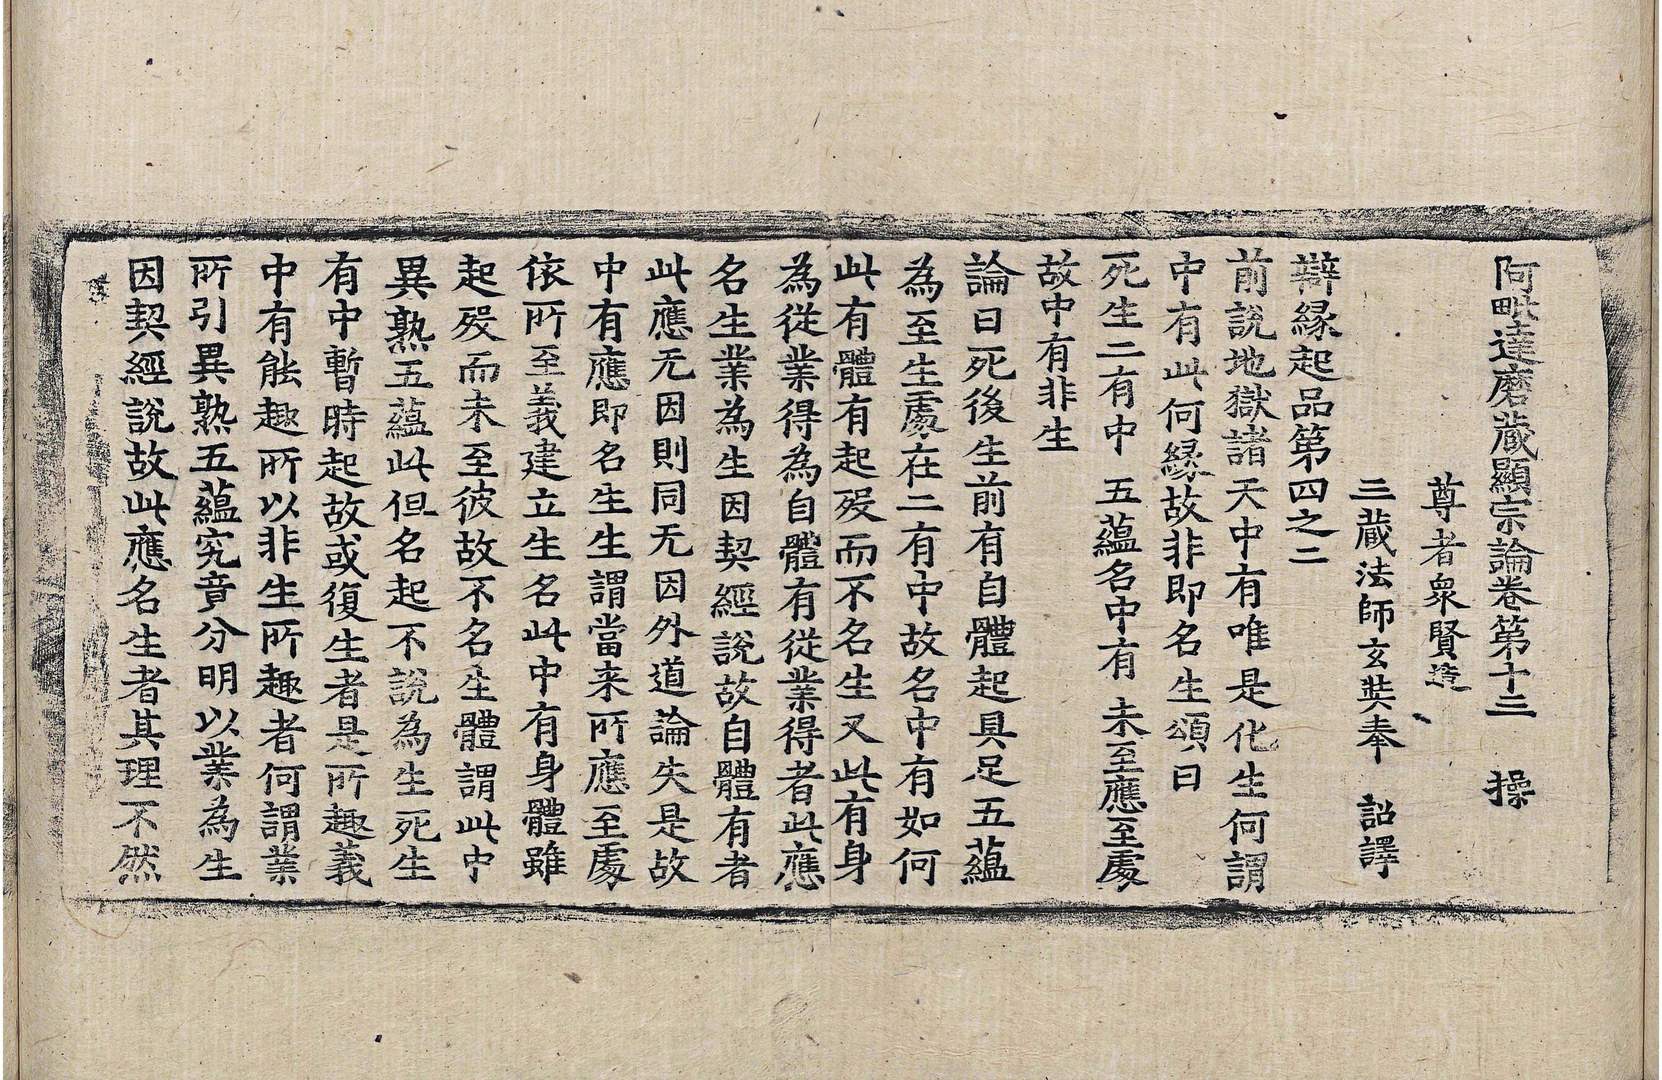 阿毗達磨藏顯宗論卷第十三　操
尊者衆賢造
三藏法師玄奘奉　詔譯
辯緣起品第四之二
前說地獄諸天中有唯是化生何謂
中有此何緣故非即名生頌曰
死生二有中　五蘊名中有　未至應至處
故中有非生
論曰死後生前有自體起具足五蘊
為至生處在二有中故名中有如何
此有體有起歿而不名生又此有身
為從業得為自體有從業得者此應
名生業為生因契經說故自體有者
此應无因則同无因外道論失是故
中有應即名生生謂當来所應至處
依所至義建立生名此中有身體雖
起歿而未至彼故不名生體謂此中
異熟五蘊此但名起不說為生死生
有中暫時起故或復生者是所趣義
中有能趣所以非生所趣者何謂業
所引異熟五蘊究竟分明以業為生
因契經說故此應名生者其理不然